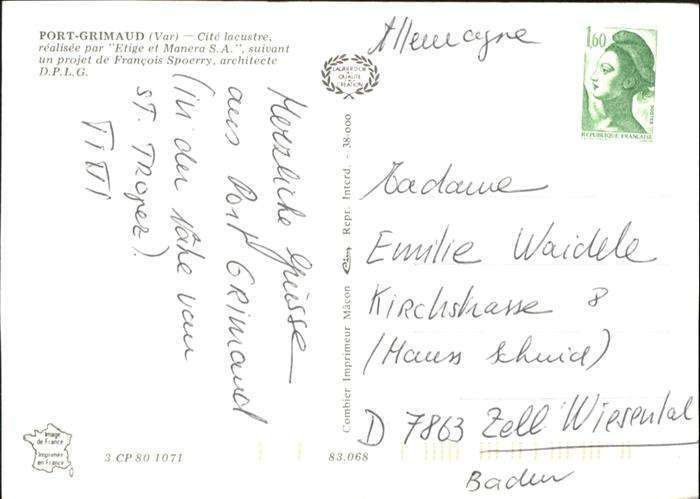 PORT-GRIMAUD (Var) — Cité lacustre,
réalisée par "Etige et Manera S.A.", suivant
un projet de François Spoerry, architecte
D.P.L.G.
Herzliche Grüsse
aus Port GRIMAUD
(in der Nähe von
ST. TROPEZ).
TITI
Image
de France
Imprimée
en France
3 CP 80 1071
83.068
Combier Imprimeur Mâcon
Repr. Interd. - 38-000
QUALITÉ
CRÉATION
Allemagne
1,60
POSTES
REPUBLIQUE FRANÇAISE
Madame
Emilie Waidele
Kirchstrasse 8
(Hauss Schmid)
D 7863 Zell Wiesental
Baden